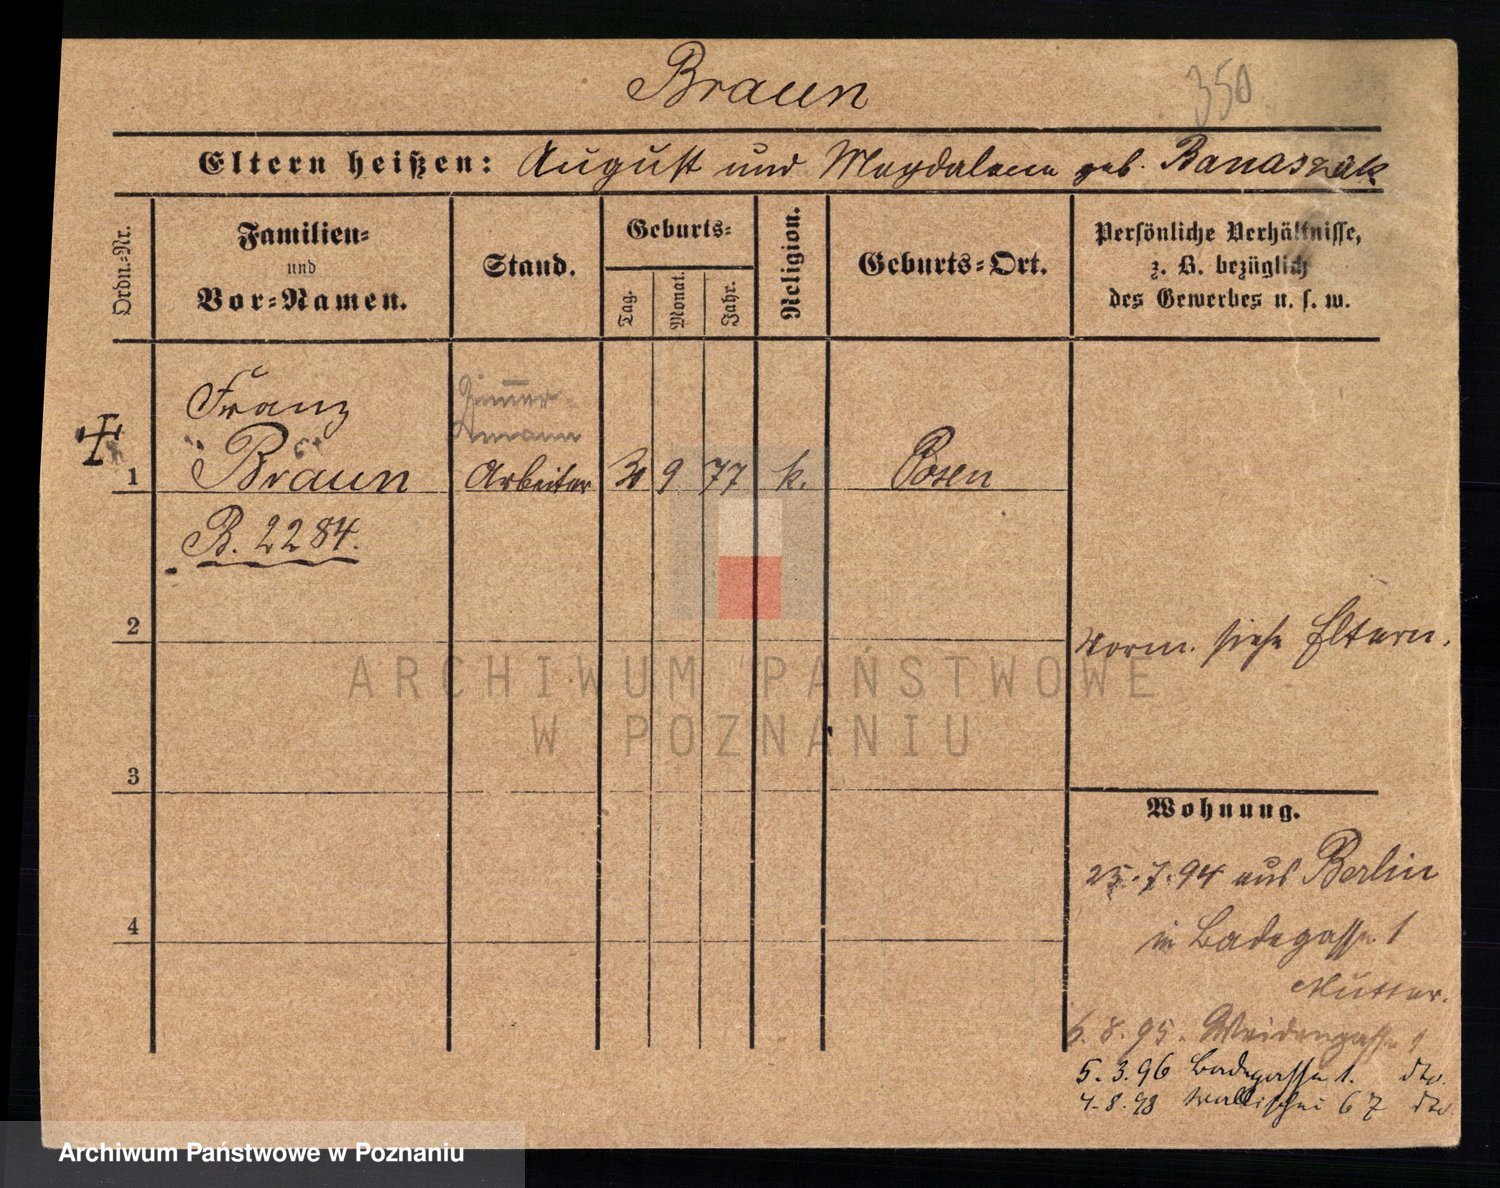 Braun
350
Eltern heißen: August und Magdalena geb. Banaszak
Ordn.-Nr.
Familien-
und
Vor-Namen.
Stand.
Geburts-
Tag.
Monat.
Jahr.
Religion.
Geburts-Ort.
Persönliche Verhältnisse,
z. B. bezüglich
des Gewerbes u. s. w.
Franz
Zimmer-
mann
1 Braun Arbeiter 30 9 77 k. Posen
B. 2284.
2
vorm. siehe Eltern.
3
Wohnung.
25.7.94 aus Berlin
4
in Badegasse 1
Mutter.
6.8.95. Weidengasse 9
5.3.96 Badegasse 1. dto.
4.8.98 Wallischei 67 dto.
ARCHIWUM PAŃSTWOWE
W POZNANIU
Archiwum Państwowe w Poznaniu